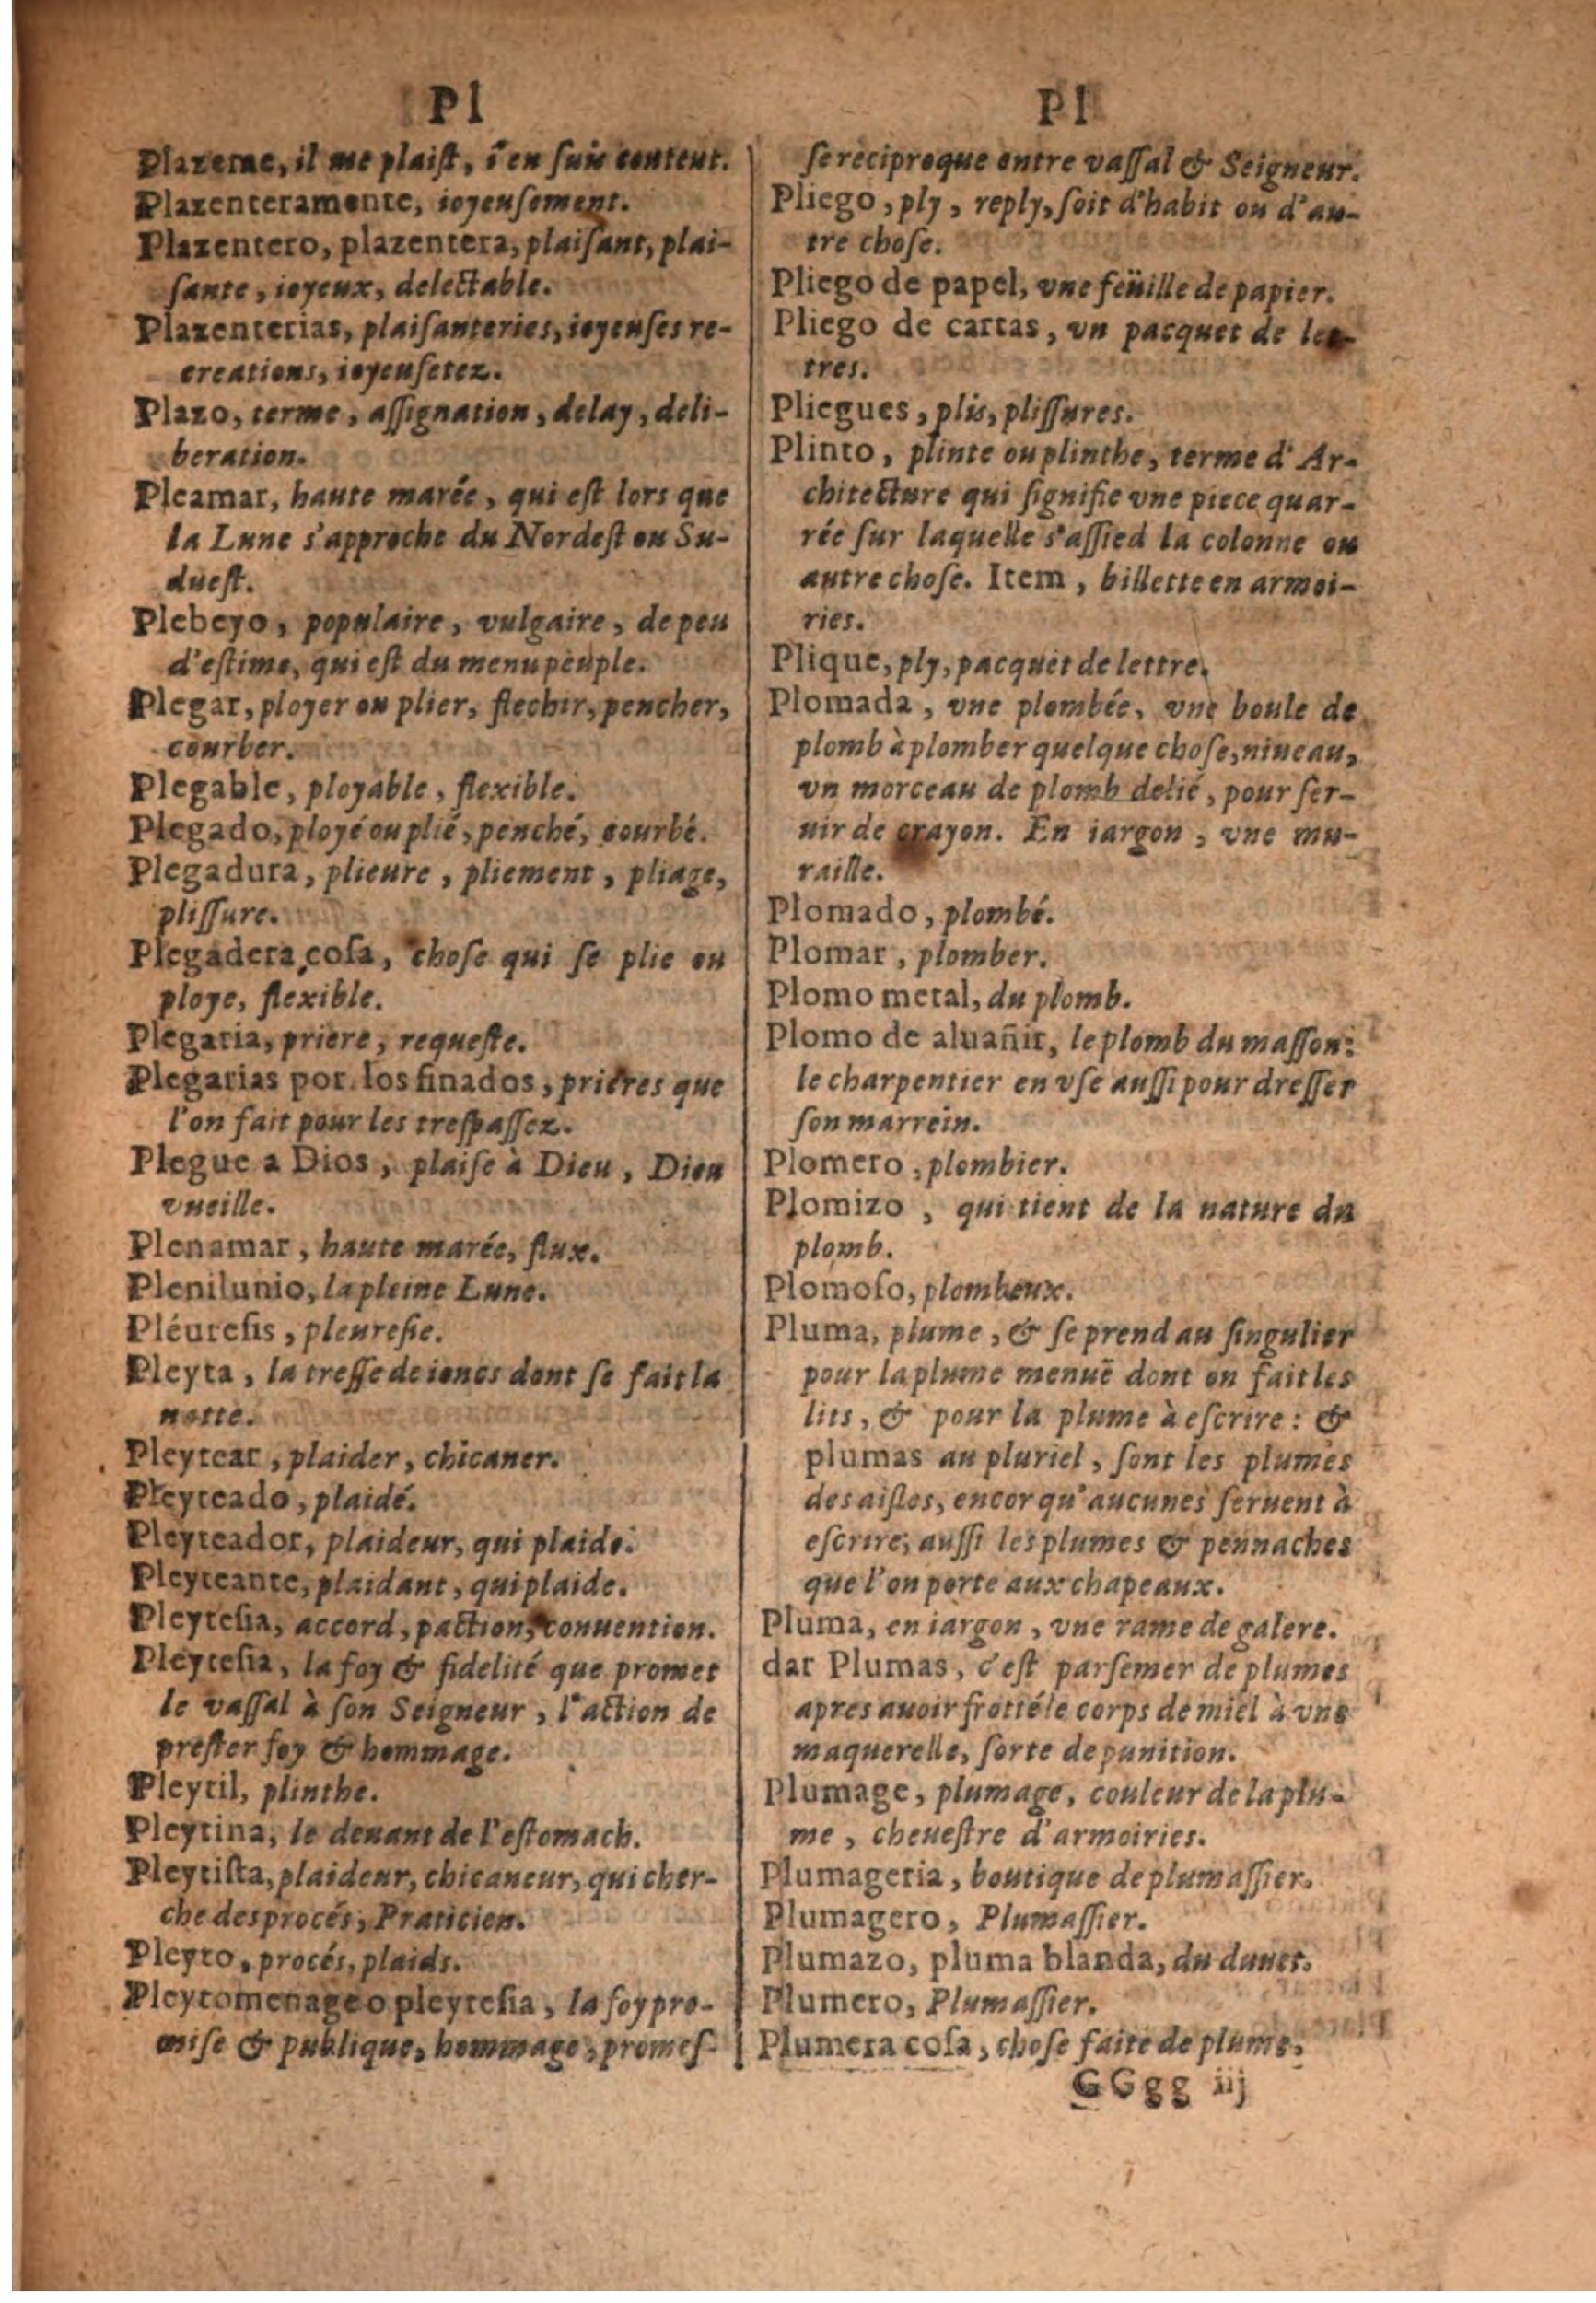 Pl
Plazeme, il me plaiſt, i'en ſuis content.
Plazenteramente, ioyeuſement.
Plazentero, plazentera, plaiſant, plai-
ſante, ioyeux, delectable.
Plazenterias, plaiſanteries, ioyeuſes re-
creations, ioyeuſetez.
Plazo, terme, aſſignation, delay, deli-
beration.
Pleamar, haute marée, qui eſt lors que
la Lune s'approche du Nordeſt ou Su-
dueſt.
Plebeyo, populaire, vulgaire, de peu
d'eſtime, qui eſt du menu peuple.
Plegar, ployer ou plier, flechir, pencher,
courber.
Plegable, ployable, flexible.
Plegado, ployé ou plié, penché, courbé.
Plegadura, plieure, pliement, pliage,
pliſſure.
Plegadera coſa, choſe qui ſe plie ou
ploye, flexible.
Plegaria, priere, requeſte.
Plegarias por los finados, prieres que
l'on fait pour les treſpaſſez.
Plegue a Dios, plaiſe à Dieu, Dieu
vueille.
Plenamar, haute marée, flux.
Plenilunio, la pleine Lune.
Pléureſis, pleureſie.
Pleyta, la treſſe de ioncs dont ſe fait la
natte.
Pleytear, plaider, chicaner.
Pleyteado, plaidé.
Pleyteador, plaideur, qui plaide.
Pleyteante, plaidant, qui plaide.
Pleyteſia, accord, paction, conuention.
Pleyteſia, la foy & fidelité que promet
le vaſſal à ſon Seigneur, l'action de
preſter foy & hommage.
Pleytil, plinthe.
Pleytina, le deuant de l'eſtomach.
Pleytiſta, plaideur, chicaneur, qui cher-
che des procés, Praticien.
Pleyto, procés, plaids.
Pleytomenage o pleyteſia, la foy pro-
miſe & publique, hommage, promeſ-
Pl
ſe reciproque entre vaſſal & Seigneur.
Pliego, ply, reply, ſoit d'habit ou d'au-
tre choſe.
Pliego de papel, vne feüille de papier.
Pliego de cartas, vn pacquet de let-
tres.
Pliegues, plis, pliſſures.
Plinto, plinte ou plinthe, terme d'Ar-
chitecture qui ſignifie vne piece quar-
rée ſur laquelle s'aſſied la colonne ou
autre choſe. Item, billette en armoi-
ries.
Plique, ply, pacquet de lettre.
Plomada, vne plombée, vne boule de
plomb à plomber quelque choſe, niueau,
vn morceau de plomb delié, pour ſer-
uir de crayon. En iargon, vne mu-
raille.
Plomado, plombé.
Plomar, plomber.
Plomo metal, du plomb.
Plomo de aluañir, le plomb du maſſon:
le charpentier en vſe auſſi pour dreſſer
ſon marrein.
Plomero, plombier.
Plomizo, qui tient de la nature du
plomb.
Plomoſo, plombeux.
Pluma, plume, & ſe prend au ſingulier
pour la plume menuë dont on fait les
lits, & pour la plume à eſcrire: &
plumas au pluriel, ſont les plumes
des aiſles, encor qu'aucunes ſeruent à
eſcrire, auſſi les plumes & pennaches
que l'on porte aux chapeaux.
Pluma, en iargon, vne rame de galere.
dar Plumas, c'eſt parſemer de plumes
apres auoir frotté le corps de miel à vne
maquerelle, ſorte de punition.
Plumage, plumage, couleur de la plu-
me, cheueſtre d'armoiries.
Plumageria, boutique de plumaſſier.
Plumagero, Plumaſſier.
Plumazo, pluma blanda, du duuet.
Plumero, Plumaſſier.
Plumera coſa, choſe faite de plume.
GGgg iij